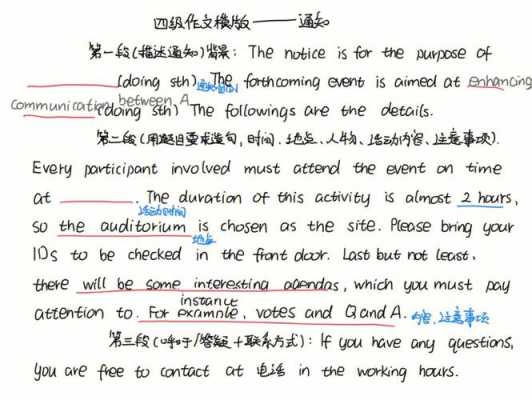 四级作文模版——通知
第一段(描述通知)背景: The notice is for the purpose of
(doing sth) The forthcoming event is aimed at enhancing
communication between A (doing sth) The followings are the details.
第二段(用题目要求造句, 时间、地点、人物、活动内容、注意事项).
Every participant involved must attend the event on time
at ______. The duration of this activity is almost 2 hours,
活动时间
so the auditorium is chosen as the site. Please bring your
地点
IDs to be checked in the front door. Last but not least,
there will be some interesting agendas, which you must pay
instance
attention to. For example, votes and Q and A. 内容、注意事项
第三段(呼吁/答疑+联系方式): If you have any questions,
you are free to contact at 电话 in the working hours.